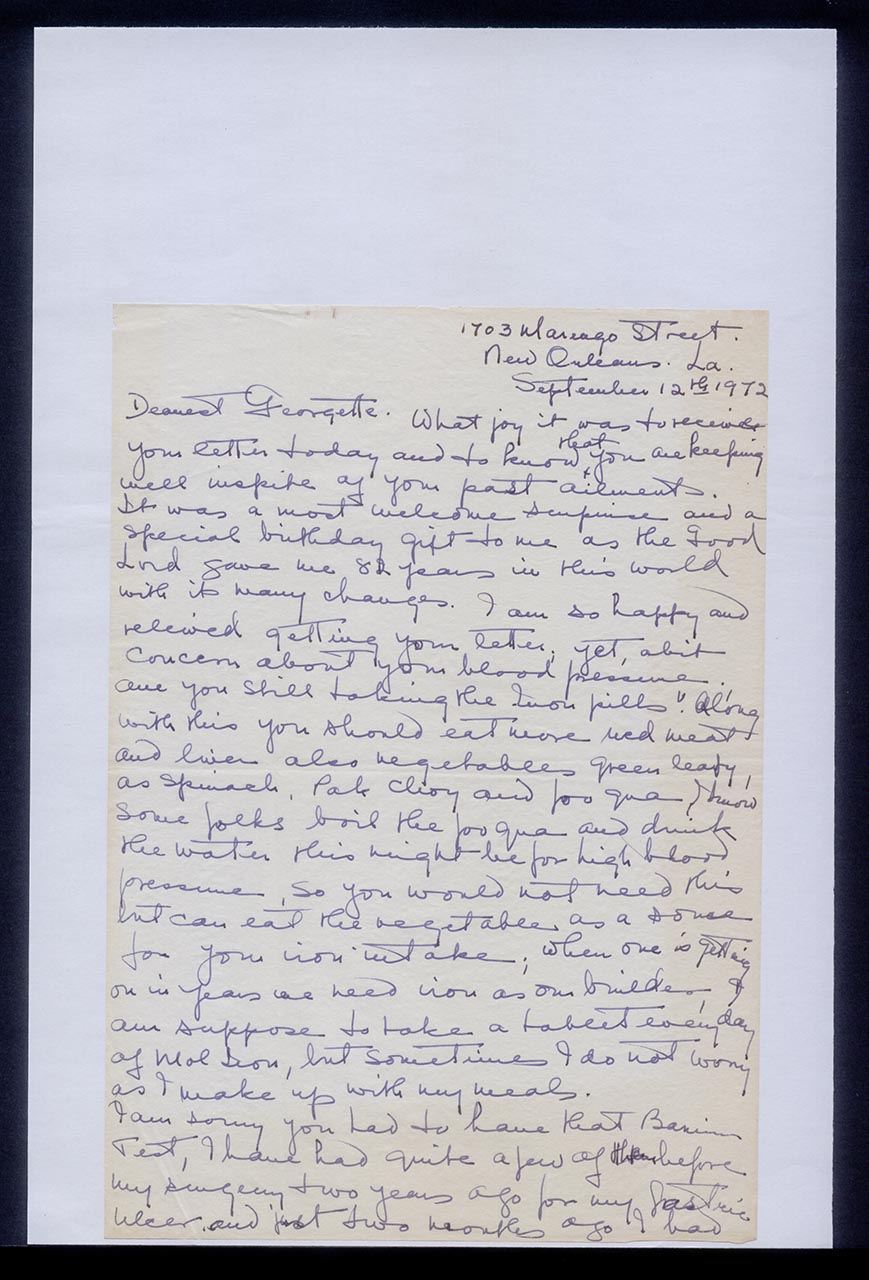 1703 Marengo Street.
New Orleans. La.
September 12th 1972
Dearest Georgette. What joy it was to receive
your letter today and to know that you are keeping
well inspite of your past ailments.
It was a most welcome surprise and a
special birthday gift to me as the Good
Lord gave me 82 years in this world
with it many changes. I am so happy and
relieved getting your letter, yet, abit
concern about your blood pressure.
are you still taking the Iron pills". Along
with this you should eat more red meat
and liver also vegetables green leafy,
as Spinach, Pak Choy and foo qua, I know
some folks boil the foo qua and drink
the water this might be for high blood
pressure, so you would not need this
but can eat the vegetables as a source
for your iron intake, when one is getting
on in years we need iron as our builder, I
am suppose to take a tablet everyday
of Mol Iron, but sometimes I do not worry
as I make up with my meals.
I am sorry you had to have that Barium
Test, I have had quite a few of them before
my surgery two years ago for my Gastric
ulcer. and just two months ago I had